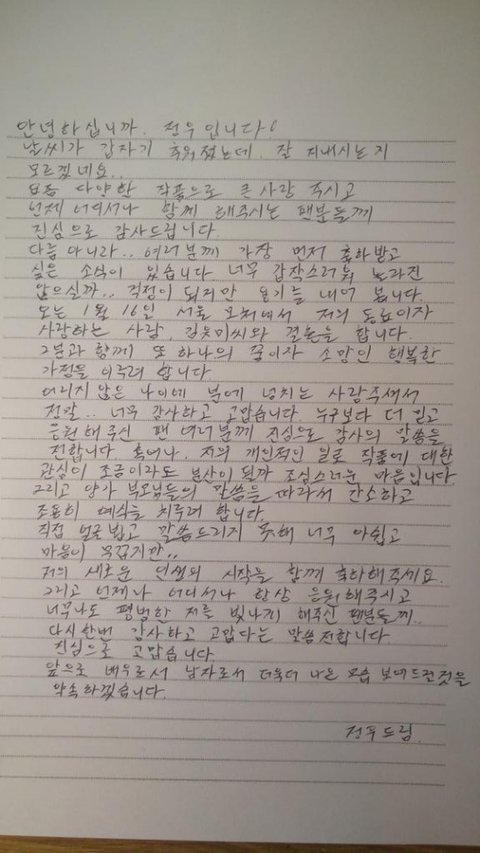 안녕하십니까. 정우입니다!
날씨가 갑자기 추워졌는데. 잘 지내시는지
모르겠네요..
요즘 다양한 작품으로 큰 사랑 주시고
언제 어디서나 함께 해주시는 팬분들께
진심으로 감사드립니다.
다름 아니라.. 여러분께 가장 먼저 축하받고
싶은 소식이 있습니다 너무 갑작스러워 놀라진
않으실까.. 걱정이 되지만 용기를 내어 봅니다.
오는 1월 16일 서울 모처에서 저의 동료이자
사랑하는 사람, 김유미씨와 결혼을 합니다.
그분과 함께 또 하나의 꿈이자 소망인 행복한
가정을 이루려 합니다
어리지 않은 나이에 분에 넘치는 사랑주셔서
정말.. 너무 감사하고 고맙습니다. 누구보다 더 믿고
응원해 주신 팬 여러분께 진심으로 감사의 말씀을
전합니다. 혹여나. 저의 개인적인 일로 작품에 대한
관심이 조금이라도 분산이 될까 조심스러운 마음입니다
그리고 양가 부모님들의 말씀을 따라서 간소하고
조용히 예식을 치루려 합니다.
직접 얼굴뵙고 말씀드리지 못해 너무 아쉽고
마음이 무겁지만..
저의 새로운 인생의 시작을 함께 축하해주세요.
그리고 언제나 어디서나 항상 응원해주시고
너무나도 평범한 저를 빛나게 해주신 팬분들께..
다시한번 감사하고 고맙다는 말씀 전합니다
진심으로 고맙습니다
앞으로 배우로서 남자로서 더욱더 나은 모습 보여드릴것을
약속하겠습니다.
정우드림.